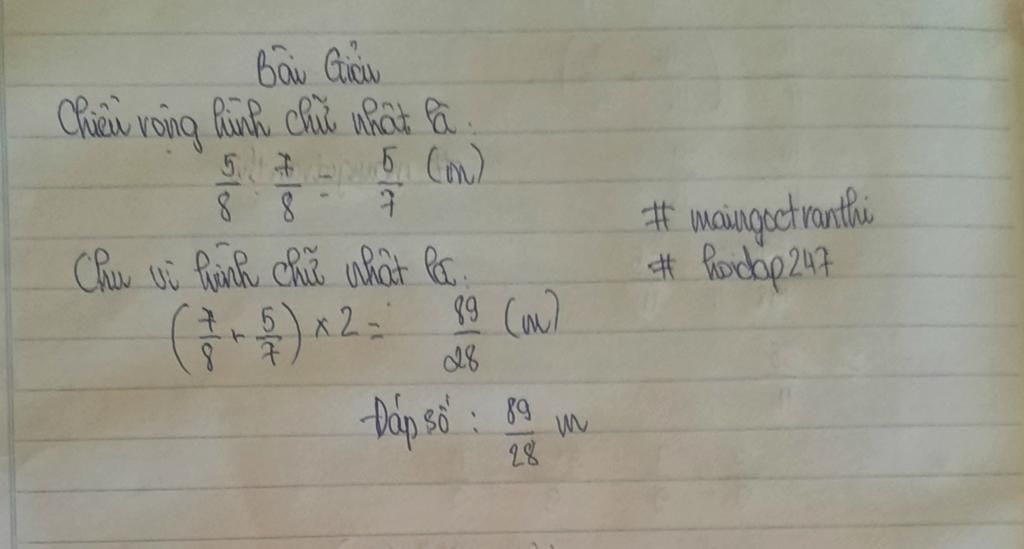 Bài Giải
Chiều rộng hình chữ nhật là:
5/8 : 7/8 = 5/7 (m)
Chu vi hình chữ nhật là:
(7/8 + 5/7) × 2 = 89/28 (m)
Đáp số : 89/28 m
# maingoctranthi
# hoidap247